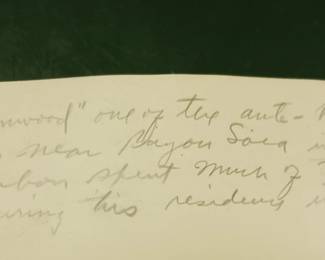 nwood" one of the ante-
near Bayou Sara
spent much of
uring his residence